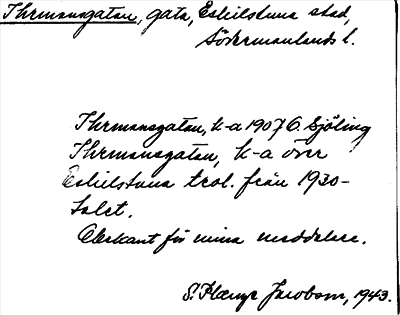 Ihrmansgatan, gata, Eskilstuna stad,
Södermanlands l.
Ihrmansgatan, k-a 1907 G. Sjöling
Ihrmansgatan, k-a över
Eskilstuna trol. från 1930-
talet.
Obekant för mina meddelare.
S. Jacobson, 1943.